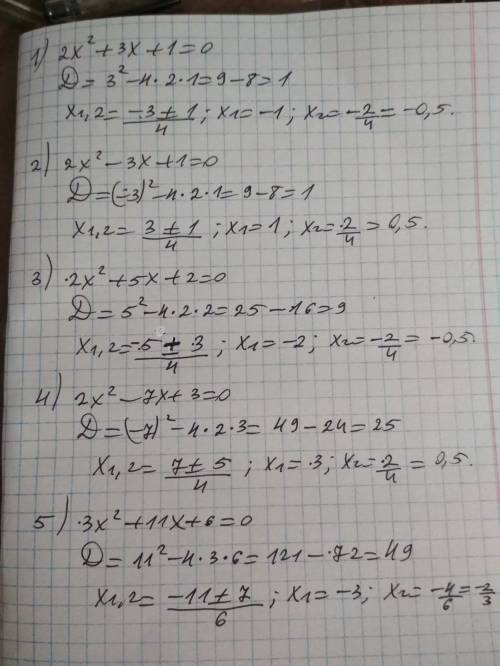 1) 2x² + 3x + 1 = 0
D = 3² - 4 · 2 · 1 = 9 - 8 = 1
x1,2 = -3 ± 1 / 4 ; x1 = -1 ; x2 = -2/4 = -0,5.
2) 2x² - 3x + 1 = 0
D = (-3)² - 4 · 2 · 1 = 9 - 8 = 1
x1,2 = 3 ± 1 / 4 ; x1 = 1 ; x2 = 2/4 = 0,5.
3) 2x² + 5x + 2 = 0
D = 5² - 4 · 2 · 2 = 25 - 16 = 9
x1,2 = -5 ± 3 / 4 ; x1 = -2 ; x2 = -2/4 = -0,5.
4) 2x² - 7x + 3 = 0
D = (-7)² - 4 · 2 · 3 = 49 - 24 = 25
x1,2 = 7 ± 5 / 4 ; x1 = 3 ; x2 = 2/4 = 0,5.
5) 3x² + 11x + 6 = 0
D = 11² - 4 · 3 · 6 = 121 - 72 = 49
x1,2 = -11 ± 7 / 6 ; x1 = -3 ; x2 = -4/6 = -2/3